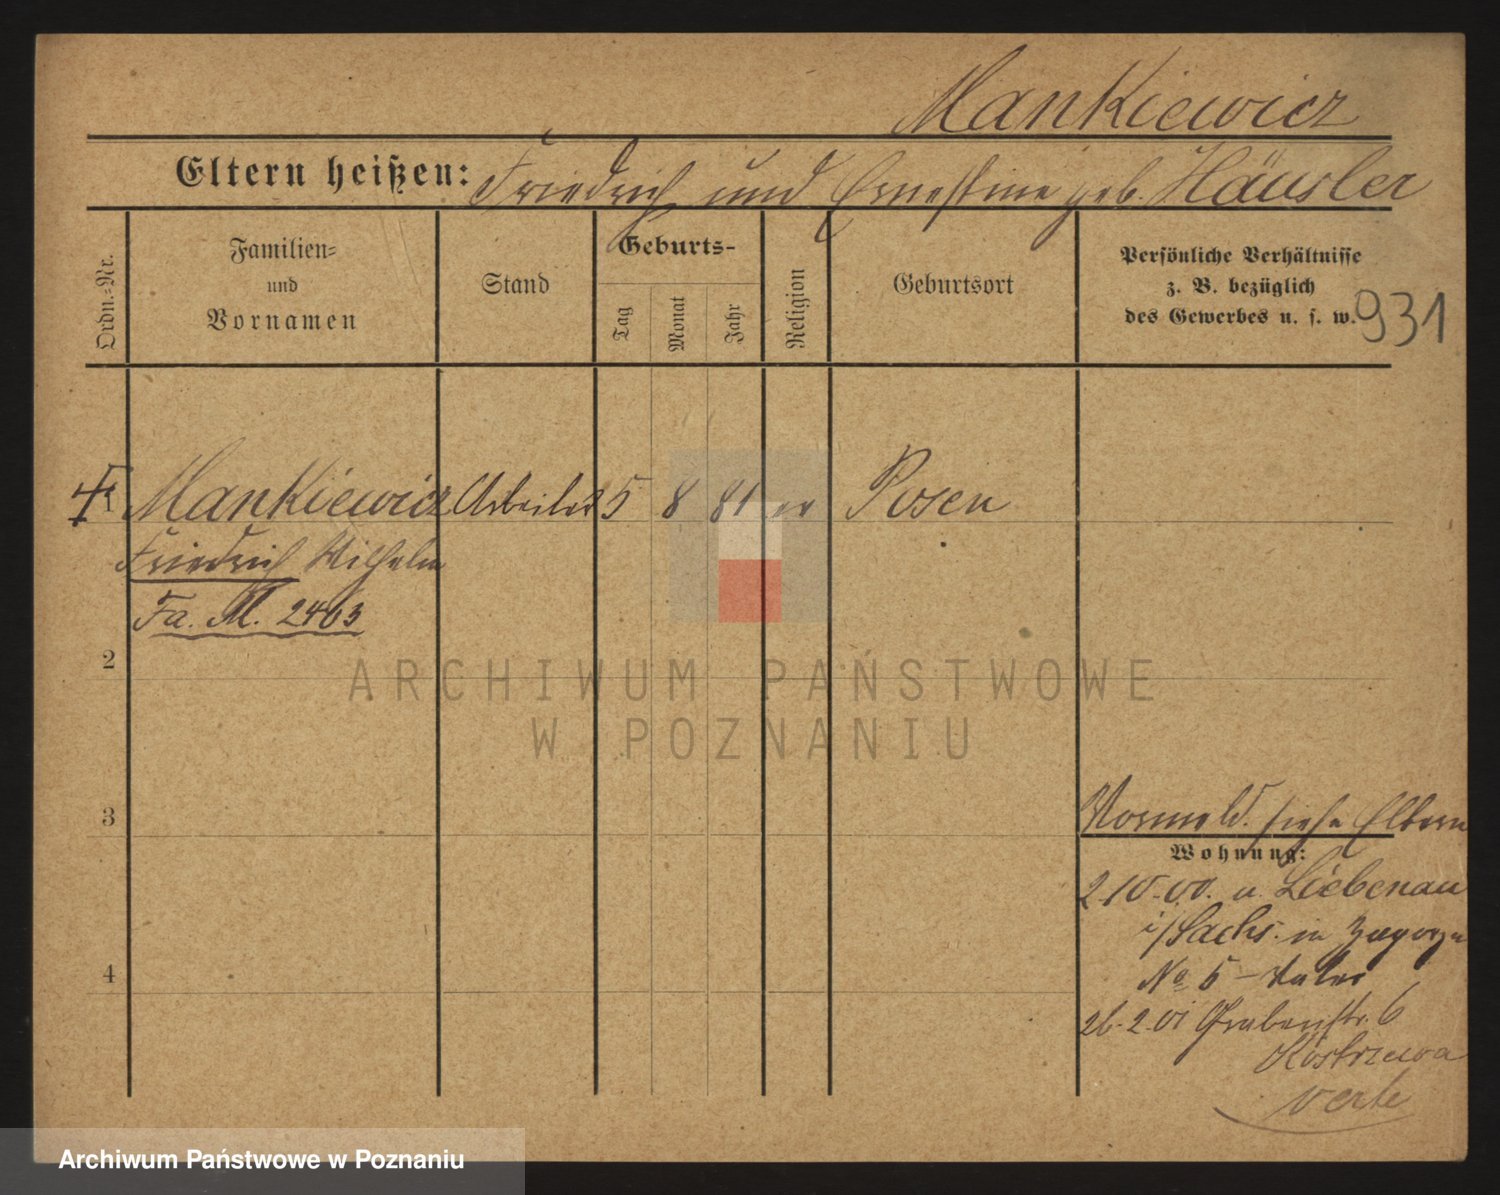 Mankiewicz
Eltern heißen: Friedrich und Ernestine geb. Häusler
Ordn.-Nr.
Familien-
und
Vornamen
Stand
Geburts-
Tag
Monat
Jahr
Religion
Geburtsort
Persönliche Verhältnisse
z. B. bezüglich
des Gewerbes u. s. w.
931
1 Mankiewicz Arbeiter 5 8 81 ev Posen
Friedrich Wilhelm
Fa. M. 2403
2
3
4
Vormeld. siehe Eltern
Wohnung:
2.10.00. a. Liebenau
i/Sachs. in Zagorze
No 5 – Vater
26.2.01 Grabenstr. 6
Kostrzewa
verte
ARCHIWUM PAŃSTWOWE
W POZNANIU
Archiwum Państwowe w Poznaniu